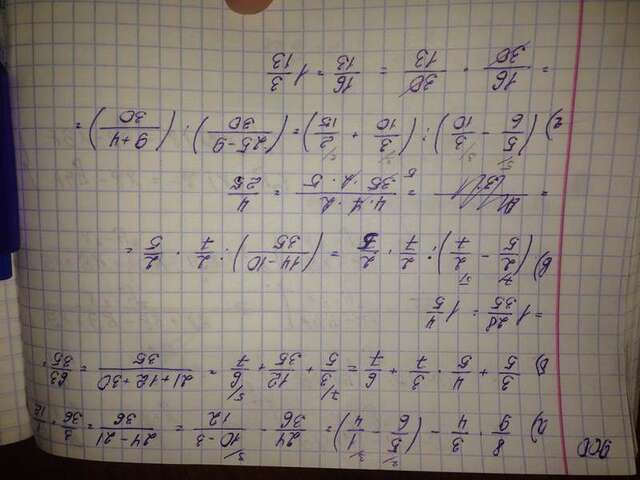 900
а) 8/9 · 3/4 - (5/6 - 1/4) = 24/36 - (10-3)/12 = (24-21)/36 = 3/36 = 1/12
б) 3/5 + 4/5 · 3/7 + 6/7 = 3/5 + 12/35 + 6/7 = (21+12+30)/35 = 63/35 =
= 1 28/35 = 1 4/5
в) (2/5 - 2/7) : 2/7 · 2/5 = ((14-10)/35) : 2/7 · 2/5 =
= (4·7·2)/(35·2·5) = 4/25
г) (5/6 - 3/10) : (3/10 + 2/15) = ((25-9)/30) : ((9+4)/30) =
= 16/30 · 30/13 = 16/13 = 1 3/13